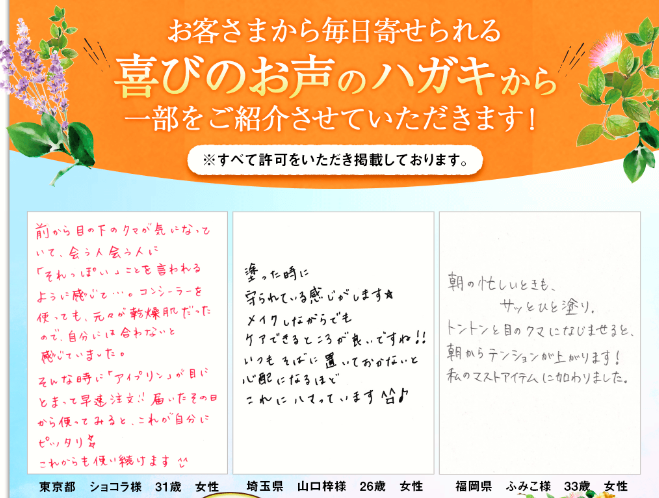 お客さまから毎日寄せられる
喜びのお声のハガキから
一部をご紹介させていただきます！
※すべて許可をいただき掲載しております。
前から目の下のクマが気になって
いて、会う人会う人に
「それっぽい」ことを言われる
ように感じて…。コンシーラーを
使っても、元々が乾燥肌だった
ので、自分には合わないと
感じていました。
そんな時に「アイプリン」が目に
とまって早速注文!! 届いたその日
から使ってみると、これが自分に
ピッタリ
これからも使い続けます
東京都 ショコラ様 31歳 女性
塗った時に
守られている感じがします★
メイクしながらでも
ケアできるところが良いですね!!
いつもそばに置いておかないと
心配になるほど
これにハマっています^^♪
埼玉県 山口梓様 26歳 女性
朝の忙しいときも、
サッとひと塗り。
トントンと目のクマになじませると、
朝からテンションが上がります！
私のマストアイテムに加わりました。
福岡県 ふみこ様 33歳 女性